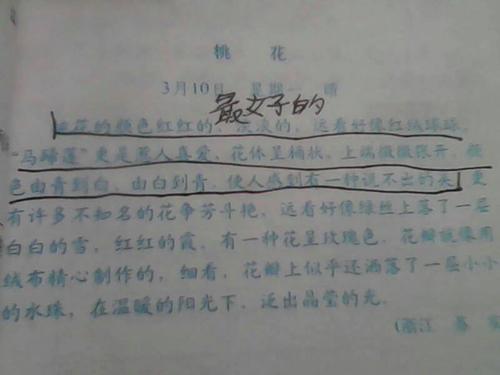 桃 花
3月10日 星期一 晴
最好的
桃花的颜色红红的、淡淡的,远看好像红绒球球。
“马蹄莲”更是惹人喜爱,花体呈桶状,上端微微张开,颜
色由青到白,由白到青,使人感到有一种说不出的美。更
有许多不知名的花争芳斗艳,远看好像绿丝上落了一层
白白的雪,红红的霞。有一种花呈玫瑰色,花瓣就像用
绒布精心制作的,细看,花瓣上似乎还洒落了一层小小
的水珠,在温暖的阳光下,泛出晶莹的光。
(浙江